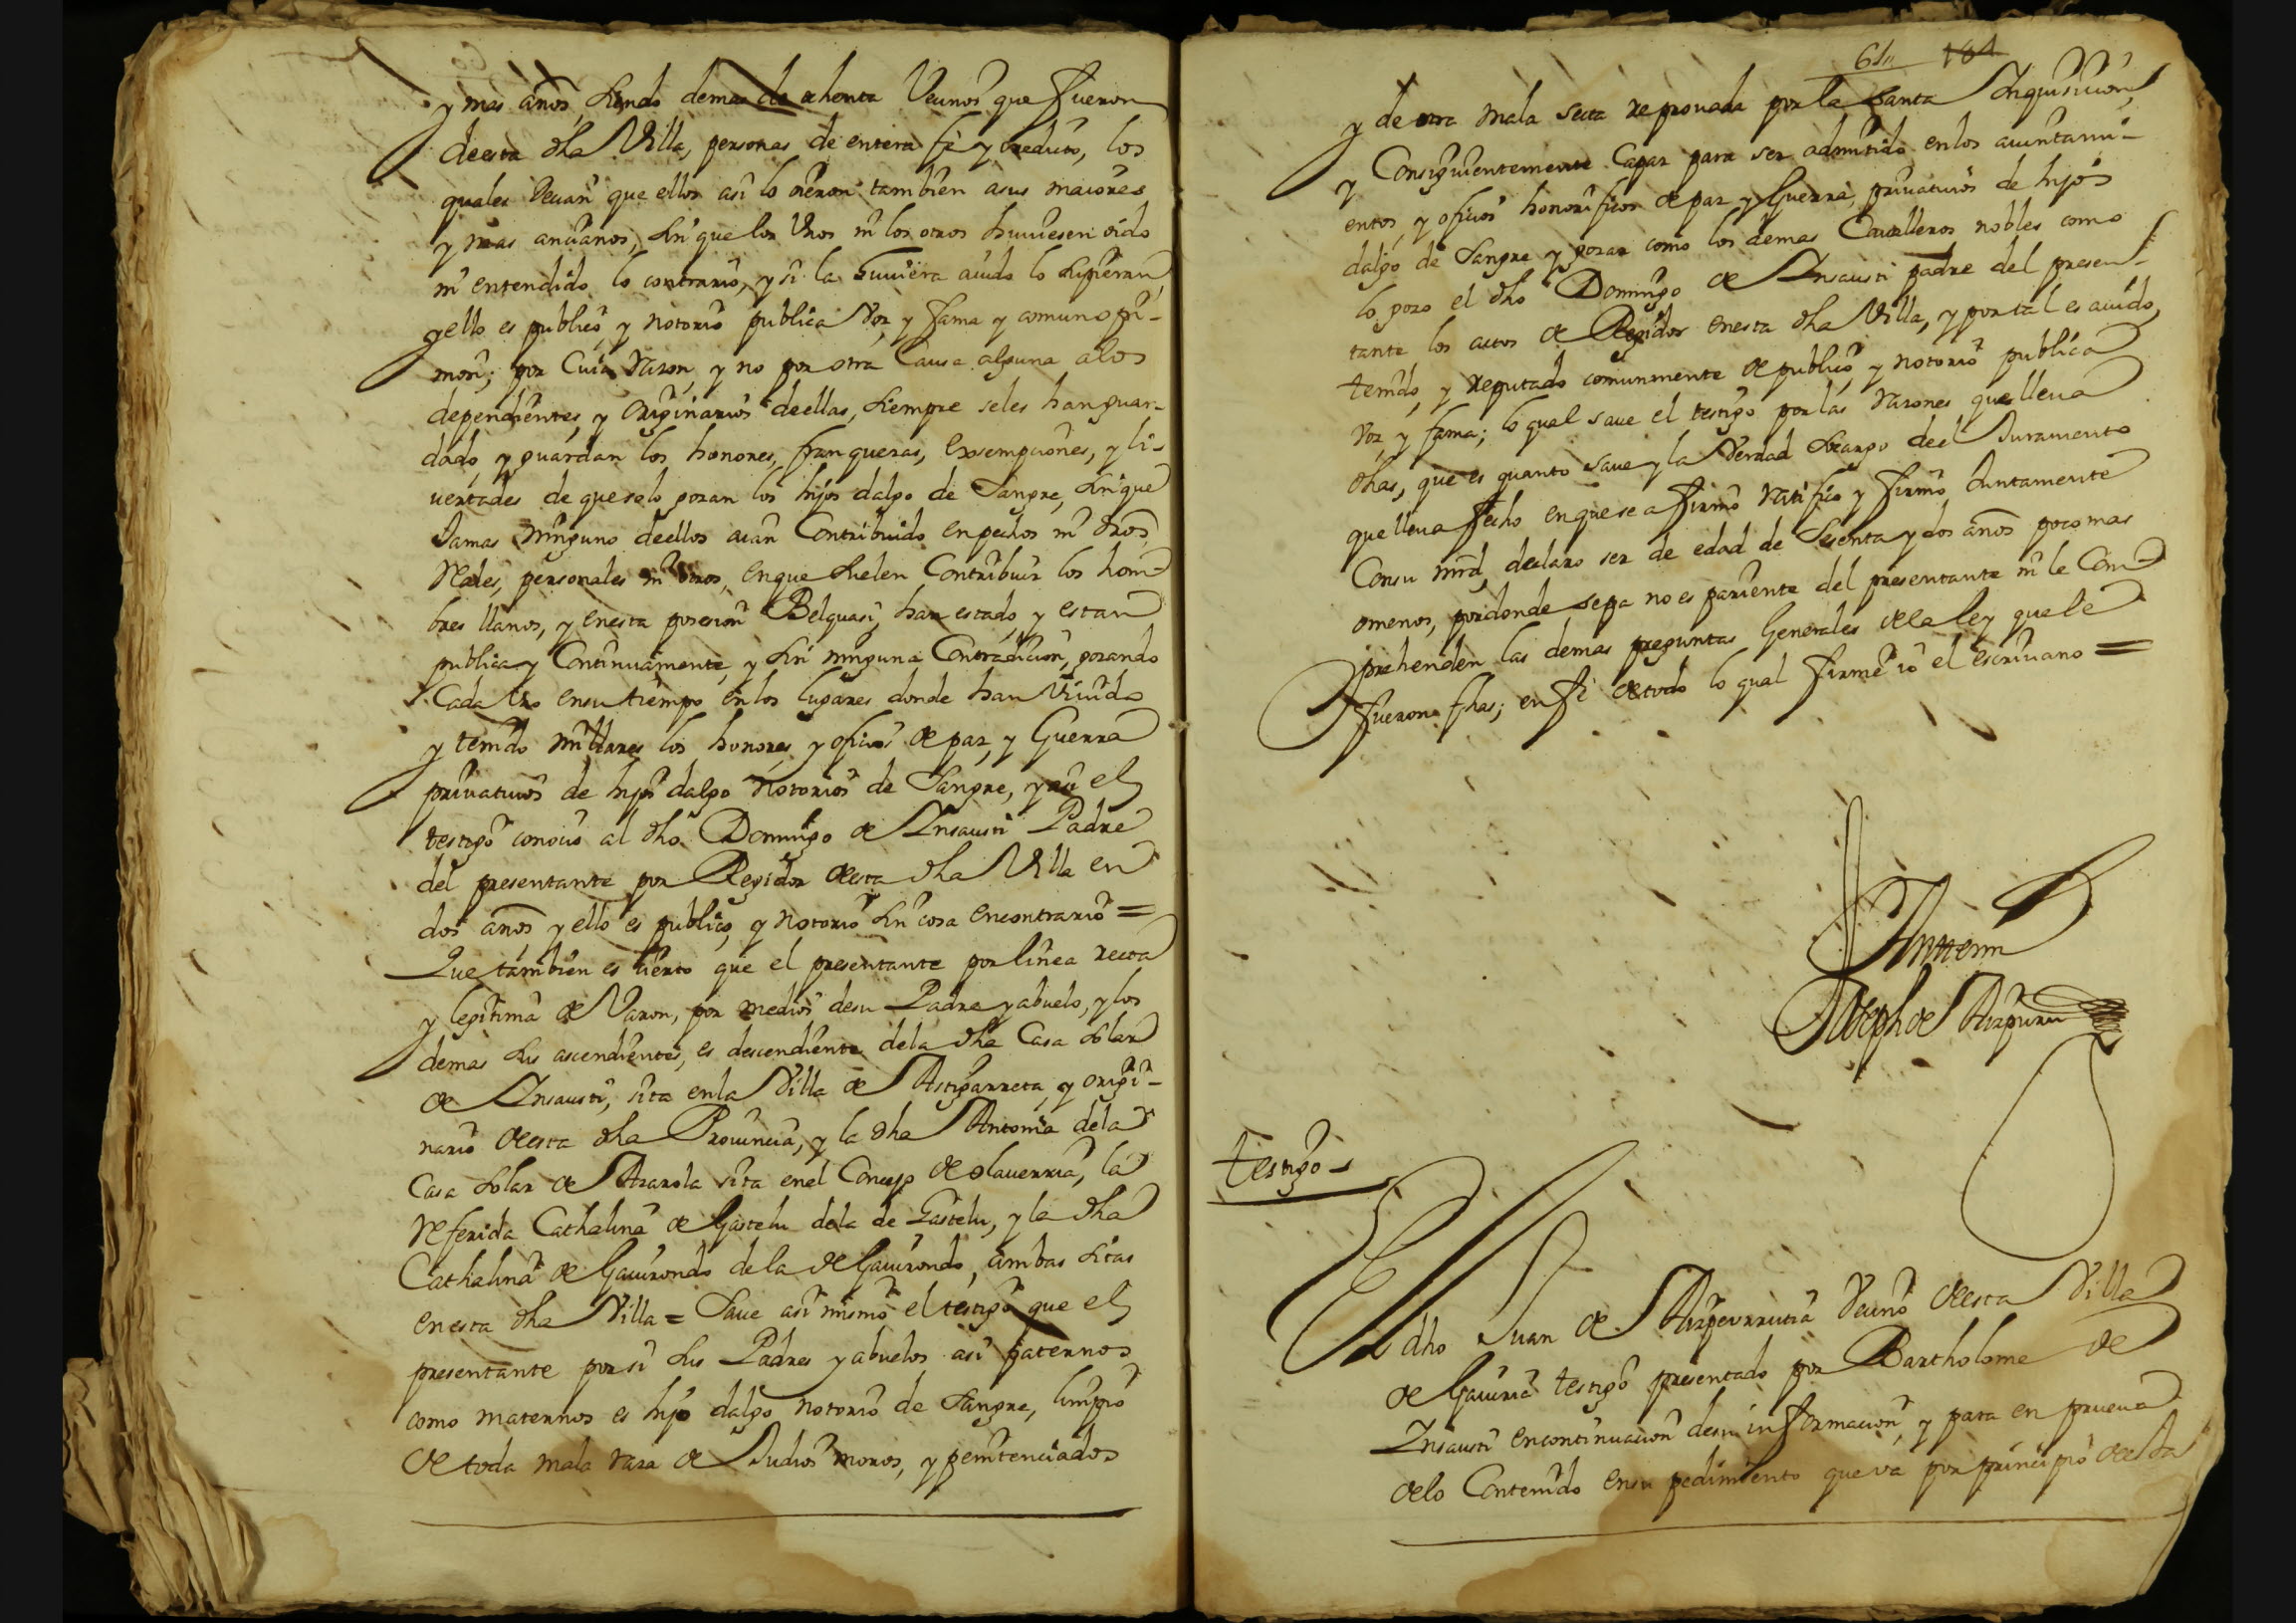 y mas años, siendo demas de ochenta Vecinos que fueron
deesta dha Villa, personas de entera fe y credito, los
quales decian que ellos asi lo oieron tambien asus maiores
y mas ancianos, sin que los Unos ni los otros huuiesen oido
ni entendido lo contrario, y si la huuiera auido lo supieran,
yello es publico y notorio publica voz y fama y comun opi-
nion; por Cuia razon, y no por otra Causa alguna alos
dependientes, y originarios deellas, siempre seles han guar-
dado, y guardan los honores, franquezas, exsempciones, y li-
uertades de que solo gozan los hijos dalgo de Sangre, sin que
Jamas ninguno deellos aian Contribuido en pechos ni dros
Reales, personales ni otros, enque suelen Contribuir los hom-
bres llanos, y enesta posesion Belquasi, han estado, y estan
publica y Continuamente, y sin ninguna Contradicion, gozando
Cada Uno ensu tiempo en los lugares donde han viuido
y tenido millares los honores, y oficios de paz, y Guerra
priuatiuos de hijos dalgo Notorios de Sangre, y asi el
testigo conocio al dho Domingo de Insausti Padre
del presentante por Regidor deesta dha Villa en
dos años, y ello es publico, y notorio sin cosa encontrario =
Que tambien es cierto que el presentante por linea recta
y legitima de Varon, por medios desu Padre y abuelo, y los
demas sus ascendientes, es descendiente dela dha Casa solar
de Insausti, sita enla Villa de Astigarreta, y origi-
nario deesta dha Prouincia, y la dha Antonia dela
Casa solar de Ararola sita enel Concejo de olauerria, la
Referida Cathalina de Gastelu dela de Gastelu, y la dha
Cathalina de Gauirondo dela de Gauirondo, ambas sitas
enesta dha Villa = Saue asi mismo el testigo que el
presentante por si sus Padres y abuelos asi paternos
como maternos es hijo dalgo notorio de Sangre, limpio
de toda mala raza de Judios moros, y penitenciados
61 164
y de otra mala secta reprouada por la Santa Inquisicion,
y Consiguientemente Capaz para ser admitido enlos aiuntami-
entos, y oficios honorificos de paz y Guerra, priuatiuos de hijos
dalgo de Sangre y gozar como los demas Caualleros nobles como
lo gozo el dho Domingo de Insausti padre del presen-
tante los actos de Regidor enesta dha Villa, y por tal es auido,
tenido, y reputado comunmente de publico, y notorio publica
voz, y fama; lo qual saue el testigo por las razones quelleua
dhas, que es quanto saue y la verdad socargo del Juramento
quelleua fecho enquese afirmo ratifico y firmo Juntamente
Consu mrd, declaro ser de edad de Sesenta y dos años poco mas
omenos, pordonde sepa no es pariente del presentante ni le Com-
prehenden las demas preguntas Generales dela ley quele
fueron fhas; en fe de todo lo qual firme io el escriuano =
Ante mi
Joseph de Aizpuru
testigo
El dho Juan de Aizpeurrutia Vecino deesta Villa
de Gauiria testigo presentado por Bartholome de
Insausti encontinuacion desu informacion, y para en prueua
delo Contenido ensu pedimiento que va por principio deesta